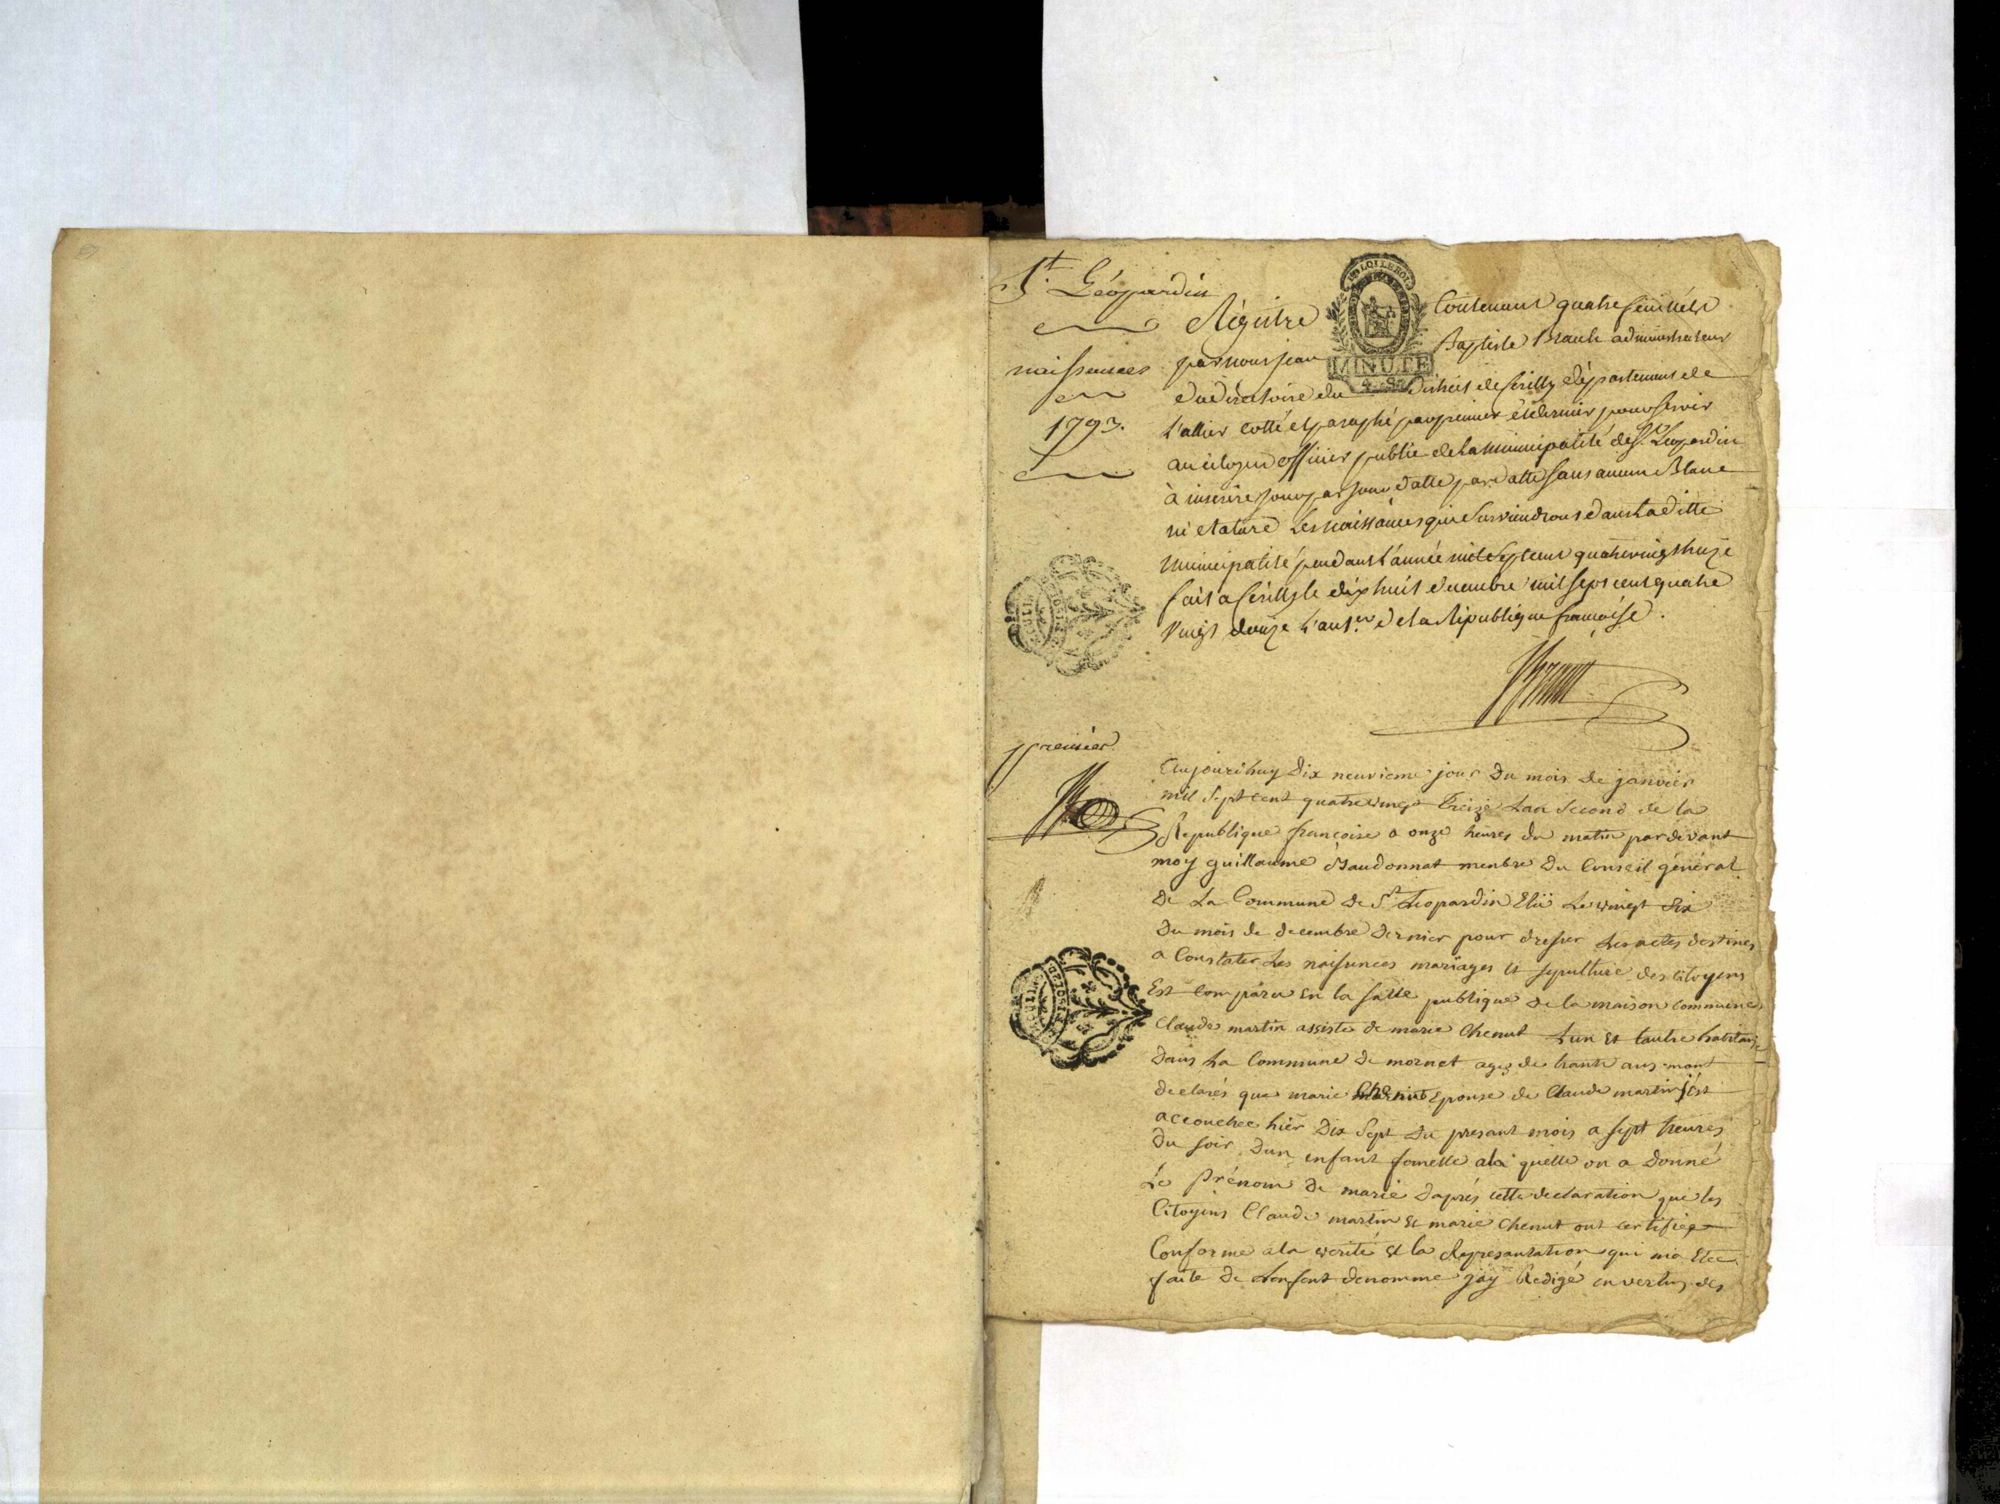 St. Léopardin
naissances
1793.
Régistre Contenant quatre feuillets
par nous jean Baptiste Brault administrateur
du diréctoire du district de Cérilly département de
L'allier cotté et paraphé par premier et dernier pour servir
au citoyen officier public de la municipalité de St. Léopardin
à inscrire jour par jour datte par datte sans aucun Blanc
ni rature Les naissances qui surviendront dans La ditte
municipalité pendant L'année mil sept cent quatrevingt treize
fait a Cérilly le dix huit décembre mil sept cent quatre
vingt douze L'an 1er de la République françoise.
Brault
premier
Aujourdhuy Dix neuvieme jour Du mois de janvier
mil sept cent quatrevingt treize Lan second de la
République françoise a onze heures du matin pardevant
moy guillaume Baudonnat menbre Du Conseil général
De La Commune De St Leopardin Elü Le vingt dix
Du mois de decembre dernier pour dresser Les actes destines
a Constater Les naisances mariages et sepulture des citoyens
Est comparu En la salle publique de la maison commune
Claude martin assiste de marie Chenut Lun et Lautre habitans
Dans La Commune de mornet agés de trante ans mont
declarés que marie Chenut Epouse de Claude martin Est
accouchee hier Dix Sept du presant mois a sept heures
Du soir Dun enfant femelle ala quelle on a Donné
Le Prénom De marie Daprés cette declaration que les
Citoyens Claude martin Et marie Chenut ont certifiée
Conforme a la verité Et la Represantation qui ma Etee
faite de Lenfant denomme jay Redigé en vertus des
MINUTE
4. S.